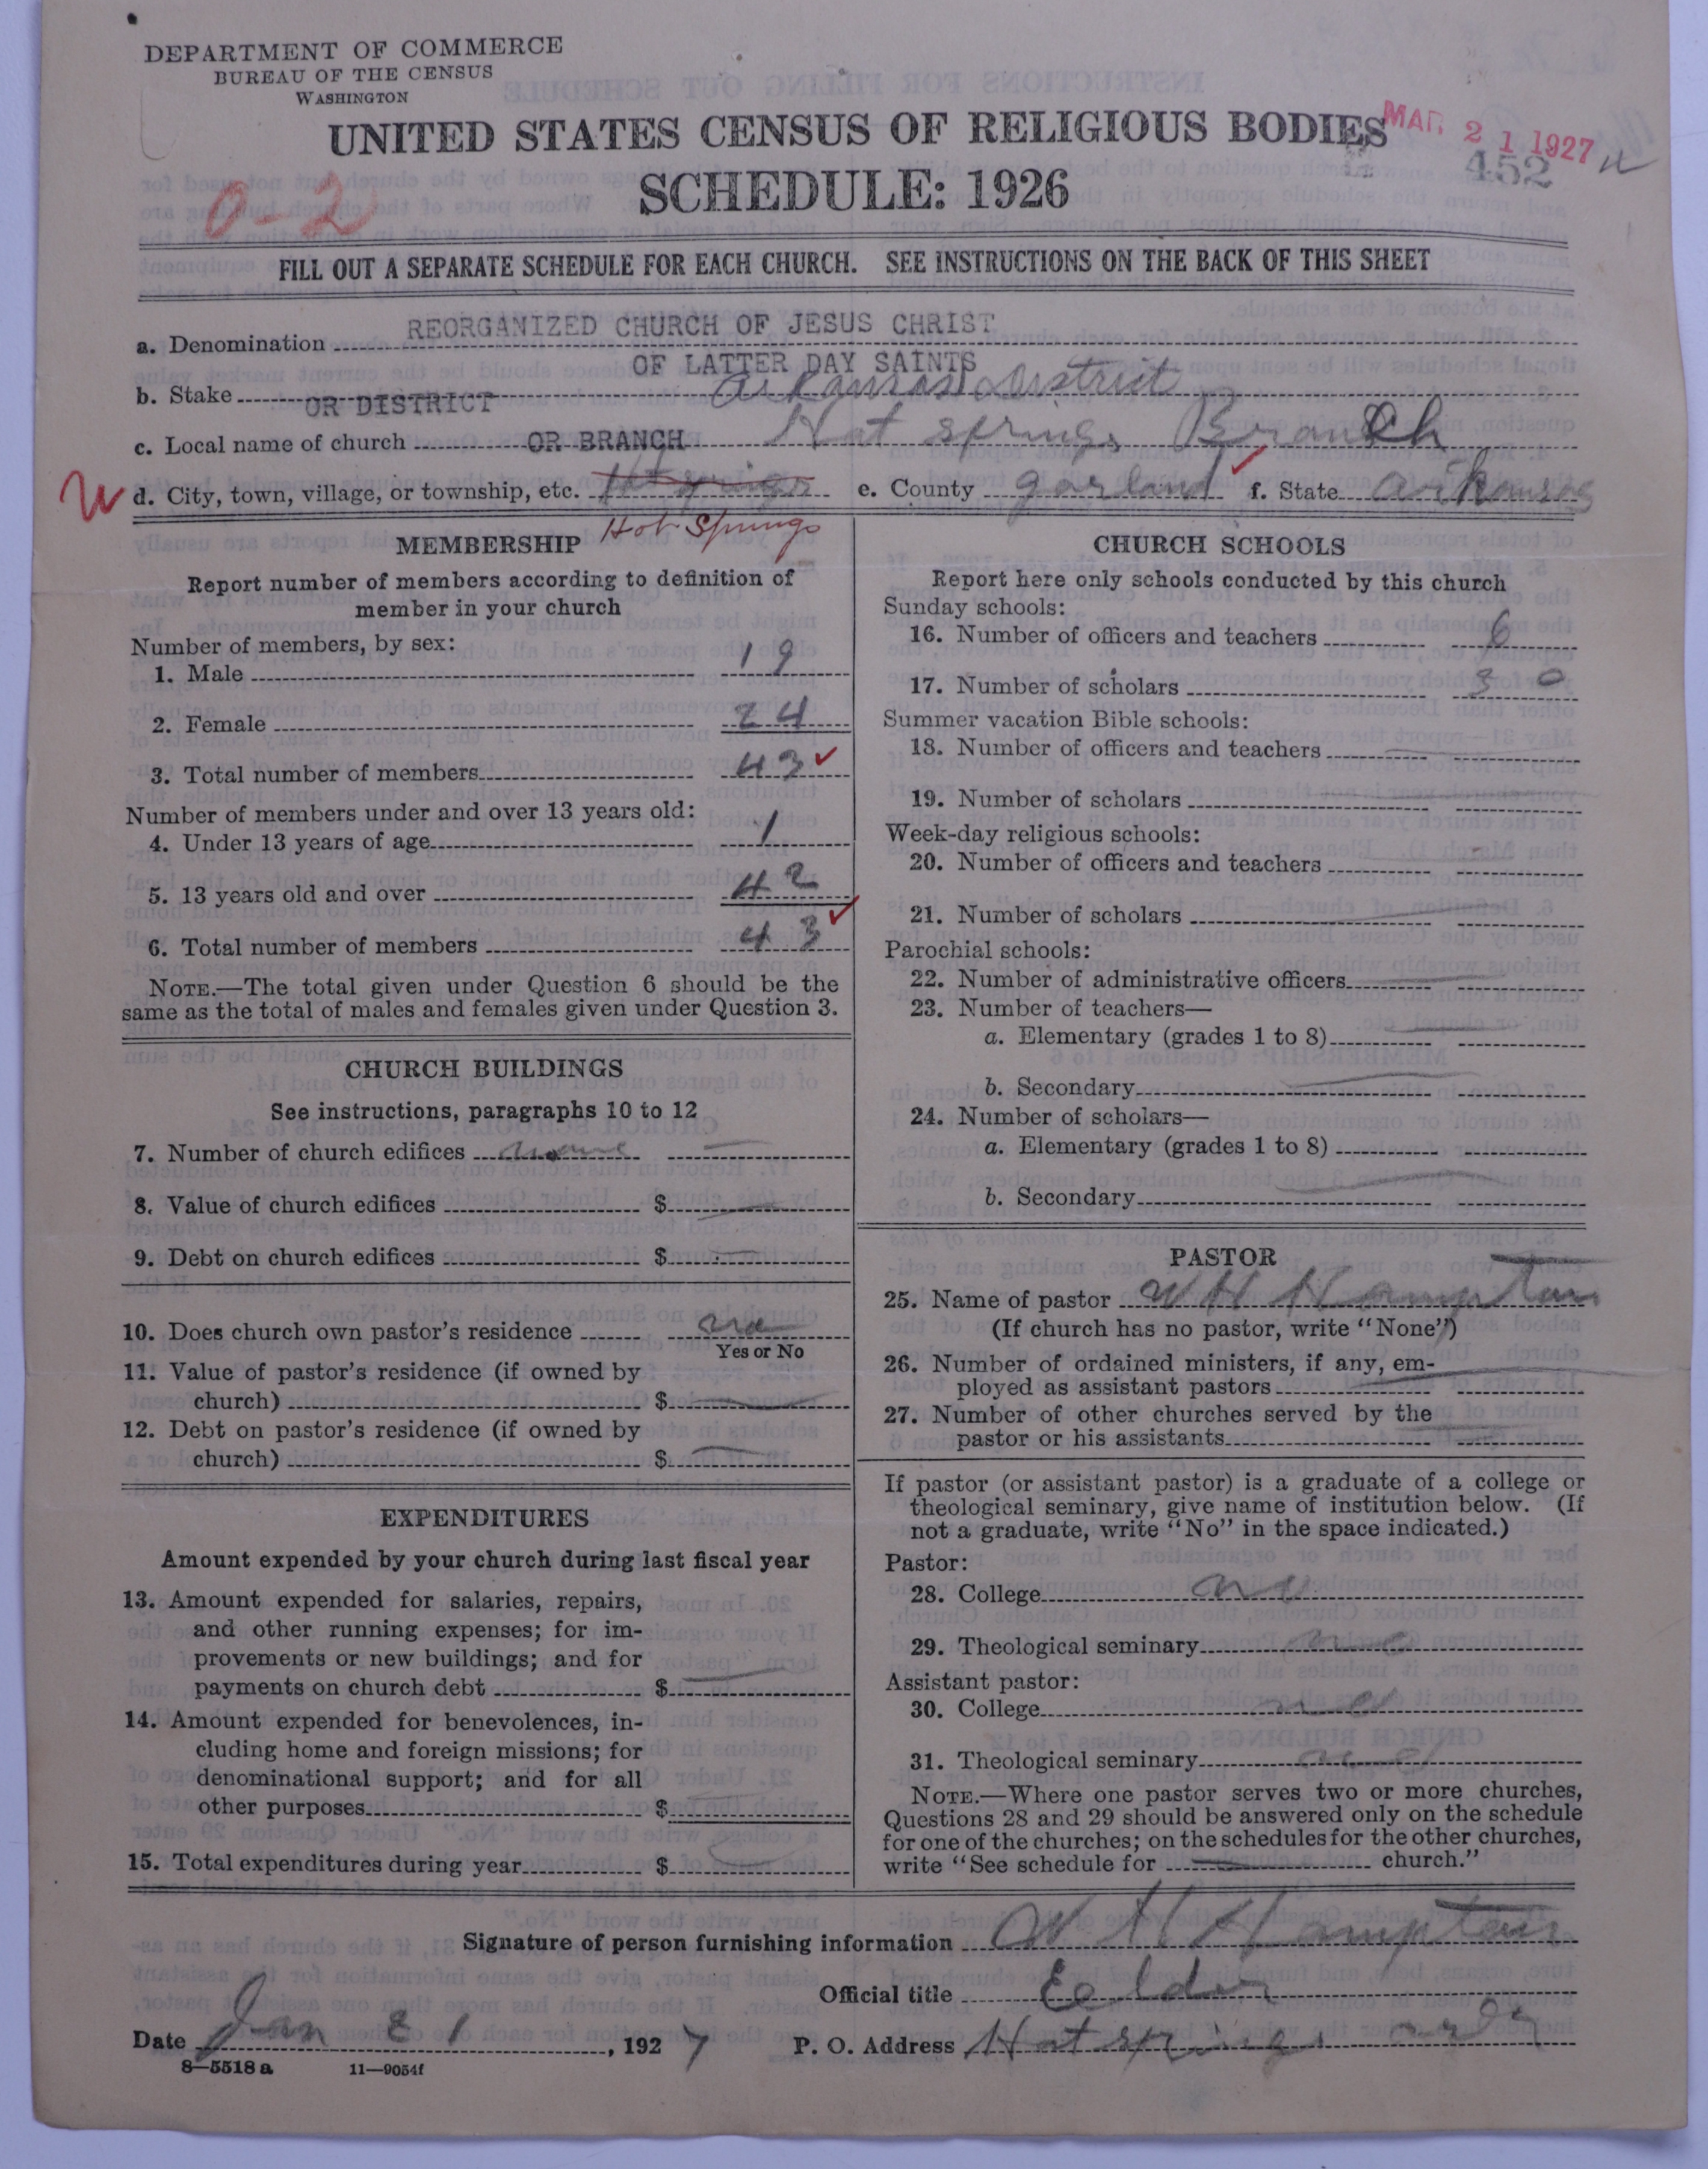 DEPARTMENT OF COMMERCE
BUREAU OF THE CENSUS
WASHINGTON
UNITED STATES CENSUS OF RELIGIOUS BODIES
MAR 21 1927
452
SCHEDULE: 1926
0-2
FILL OUT A SEPARATE SCHEDULE FOR EACH CHURCH. SEE INSTRUCTIONS ON THE BACK OF THIS SHEET
a. Denomination REORGANIZED CHURCH OF JESUS CHRIST
OF LATTER DAY SAINTS
b. Stake OR DISTRICT Arkansas District
c. Local name of church OR BRANCH Hot Springs Branch
d. City, town, village, or township, etc. Hot Springs e. County Garland f. State Arkansas
Hot Springs
MEMBERSHIP
Report number of members according to definition of
member in your church
Number of members, by sex:
1. Male 19
2. Female 24
3. Total number of members 43
Number of members under and over 13 years old:
4. Under 13 years of age 1
5. 13 years old and over 42
6. Total number of members 43
NOTE.—The total given under Question 6 should be the
same as the total of males and females given under Question 3.
CHURCH BUILDINGS
See instructions, paragraphs 10 to 12
7. Number of church edifices none
8. Value of church edifices $
9. Debt on church edifices $
10. Does church own pastor's residence no
Yes or No
11. Value of pastor's residence (if owned by
church) $
12. Debt on pastor's residence (if owned by
church) $
EXPENDITURES
Amount expended by your church during last fiscal year
13. Amount expended for salaries, repairs,
and other running expenses; for im-
provements or new buildings; and for
payments on church debt $
14. Amount expended for benevolences, in-
cluding home and foreign missions; for
denominational support; and for all
other purposes $
15. Total expenditures during year $
CHURCH SCHOOLS
Report here only schools conducted by this church
Sunday schools:
16. Number of officers and teachers 6
17. Number of scholars 30
Summer vacation Bible schools:
18. Number of officers and teachers
19. Number of scholars
Week-day religious schools:
20. Number of officers and teachers
21. Number of scholars
Parochial schools:
22. Number of administrative officers
23. Number of teachers—
a. Elementary (grades 1 to 8)
b. Secondary
24. Number of scholars—
a. Elementary (grades 1 to 8)
b. Secondary
PASTOR
25. Name of pastor W H Hampton
(If church has no pastor, write "None")
26. Number of ordained ministers, if any, em-
ployed as assistant pastors
27. Number of other churches served by the
pastor or his assistants
If pastor (or assistant pastor) is a graduate of a college or
theological seminary, give name of institution below. (If
not a graduate, write "No" in the space indicated.)
Pastor:
28. College no
29. Theological seminary no
Assistant pastor:
30. College no
31. Theological seminary no
NOTE.—Where one pastor serves two or more churches,
Questions 28 and 29 should be answered only on the schedule
for one of the churches; on the schedules for the other churches,
write "See schedule for church."
Signature of person furnishing information W H Hampton
Official title Eelder
Date Jan 21, 1927 P. O. Address Hot springs ark
8—5518 a 11—9054f